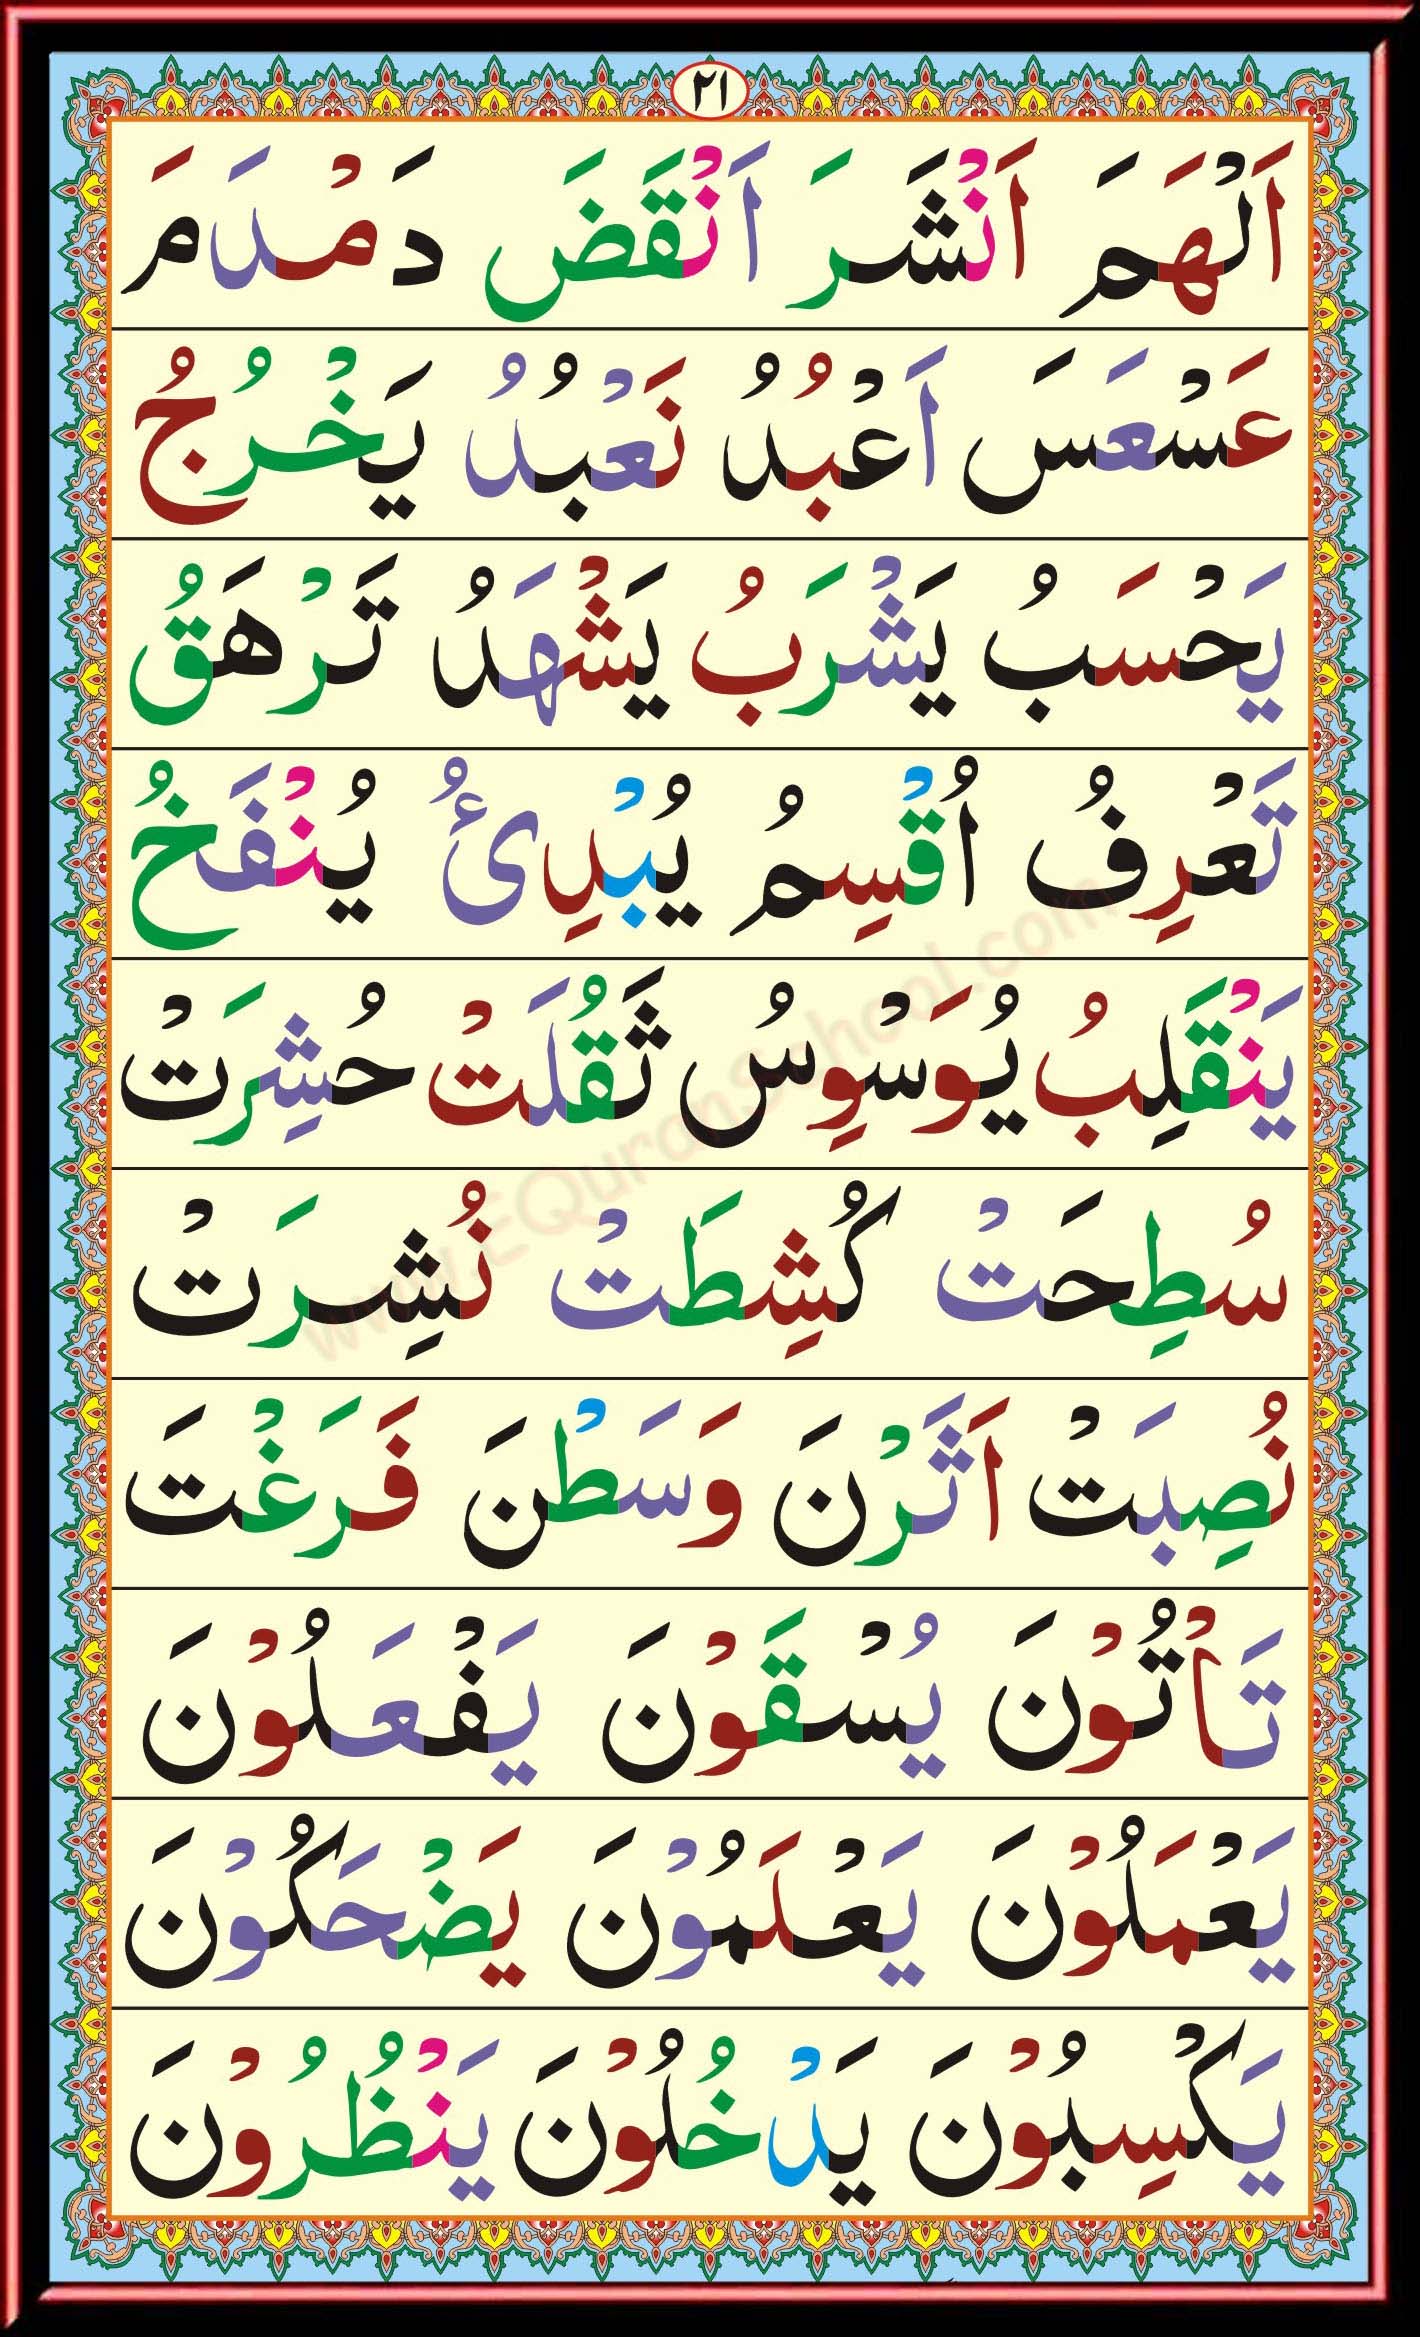 ٢١
اَلْهَمَ اَنْشَرَ اَنْقَضَ دَمْدَمَ
عَسْعَسَ اَعْبُدُ نَعْبُدُ يَخْرُجُ
يَحْسَبُ يَشْرَبُ يَشْهَدُ تَرْهَقُ
تَعْرِفُ اُقْسِمُ يُبْدِئُ يُنْفَخُ
يَنْقَلِبُ يُوَسْوِسُ ثَقُلَتْ حُشِرَتْ
سُطِحَتْ كُشِطَتْ نُشِرَتْ
نُصِبَتْ اَثَرْنَ وَسَطْنَ فَرَغْتَ
تَاْتُوْنَ يُسْقَوْنَ يَفْعَلُوْنَ
يَعْمَلُوْنَ يَعْلَمُوْنَ يَضْحَكُوْنَ
يَكْسِبُوْنَ يَدْخُلُوْنَ يَنْظُرُوْنَ
www.EQuranSchool.com